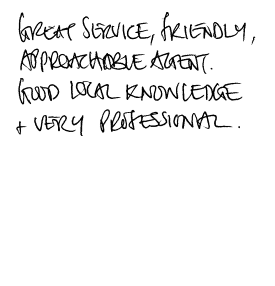 GREAT SERVICE, FRIENDLY,
APPROACHABLE AGENT.
GOOD LOCAL KNOWLEDGE
+ VERY PROFESSIONAL.